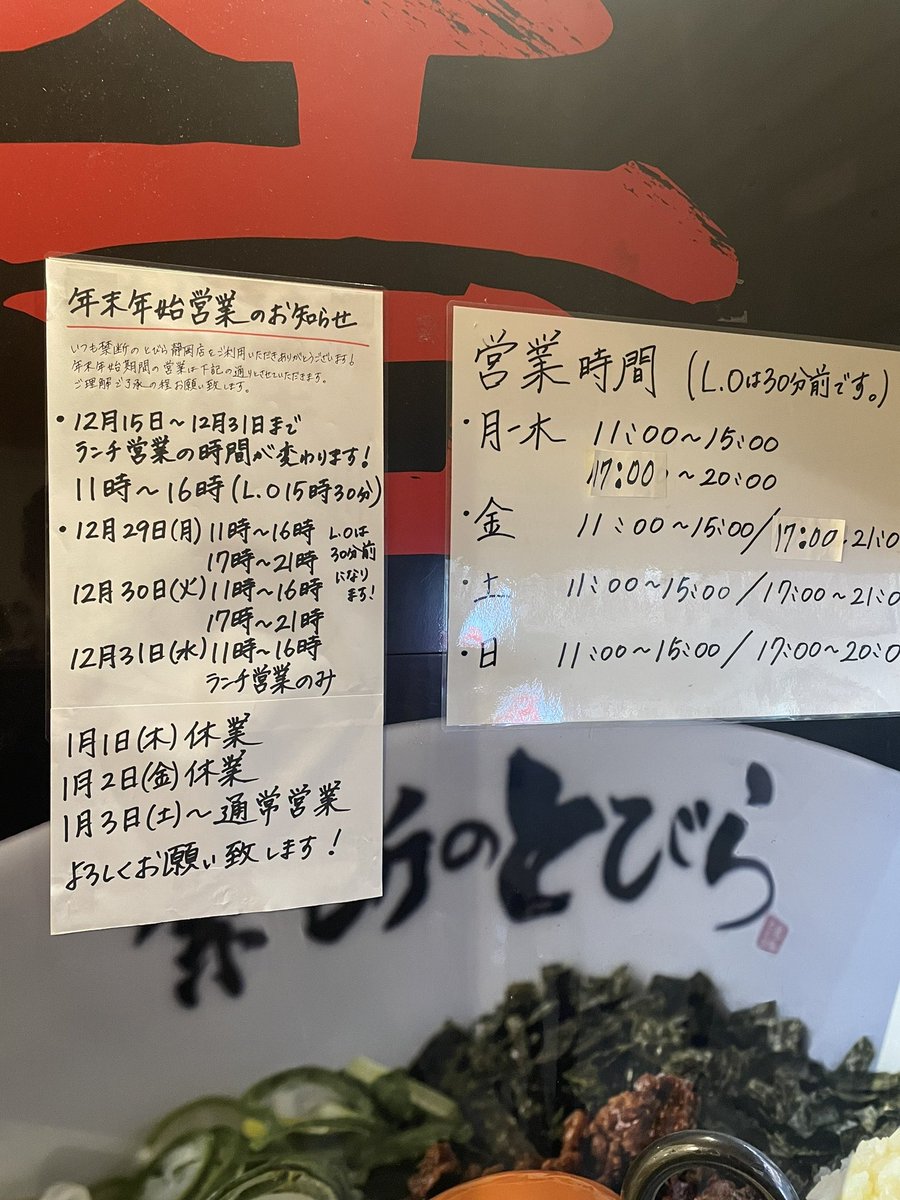 年末年始営業のお知らせ
いつも禁断のとびら静岡店をご利用いただきありがとうございます!
年末年始期間の営業は下記の通りとさせていただきます。
ご理解ご了承の程お願い致します。
・12月15日〜12月31日まで
ランチ営業の時間が変わります!
11時〜16時(L.O15時30分)
・12月29日(月)11時〜16時
17時〜21時
12月30日(火)11時〜16時
17時〜21時
L.Oは
30分前
になり
ます!
12月31日(水)11時〜16時
ランチ営業のみ
1月1日(木)休業
1月2日(金)休業
1月3日(土)〜通常営業
よろしくお願い致します!
営業時間(L.Oは30分前です。)
・月ー木 11:00〜15:00
17:00〜20:00
・金 11:00〜15:00/17:00〜21:0
・土 11:00〜15:00/17:00〜21:0
・日 11:00〜15:00/17:00〜20:0
禁断のとびら